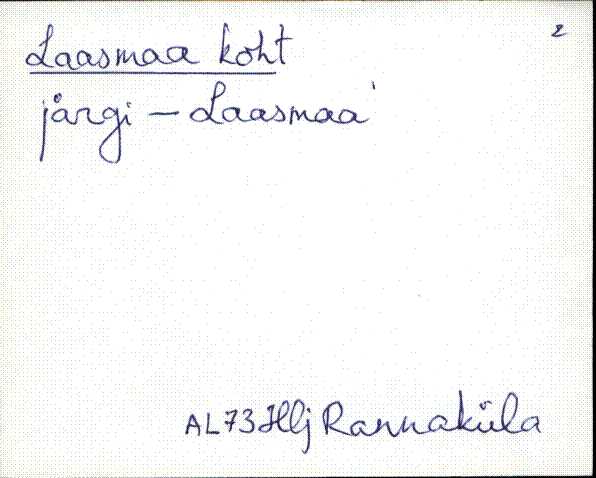 2
Laasmaa koht
järgi – Laasmaa
AL 73 Hlj Rannaküla